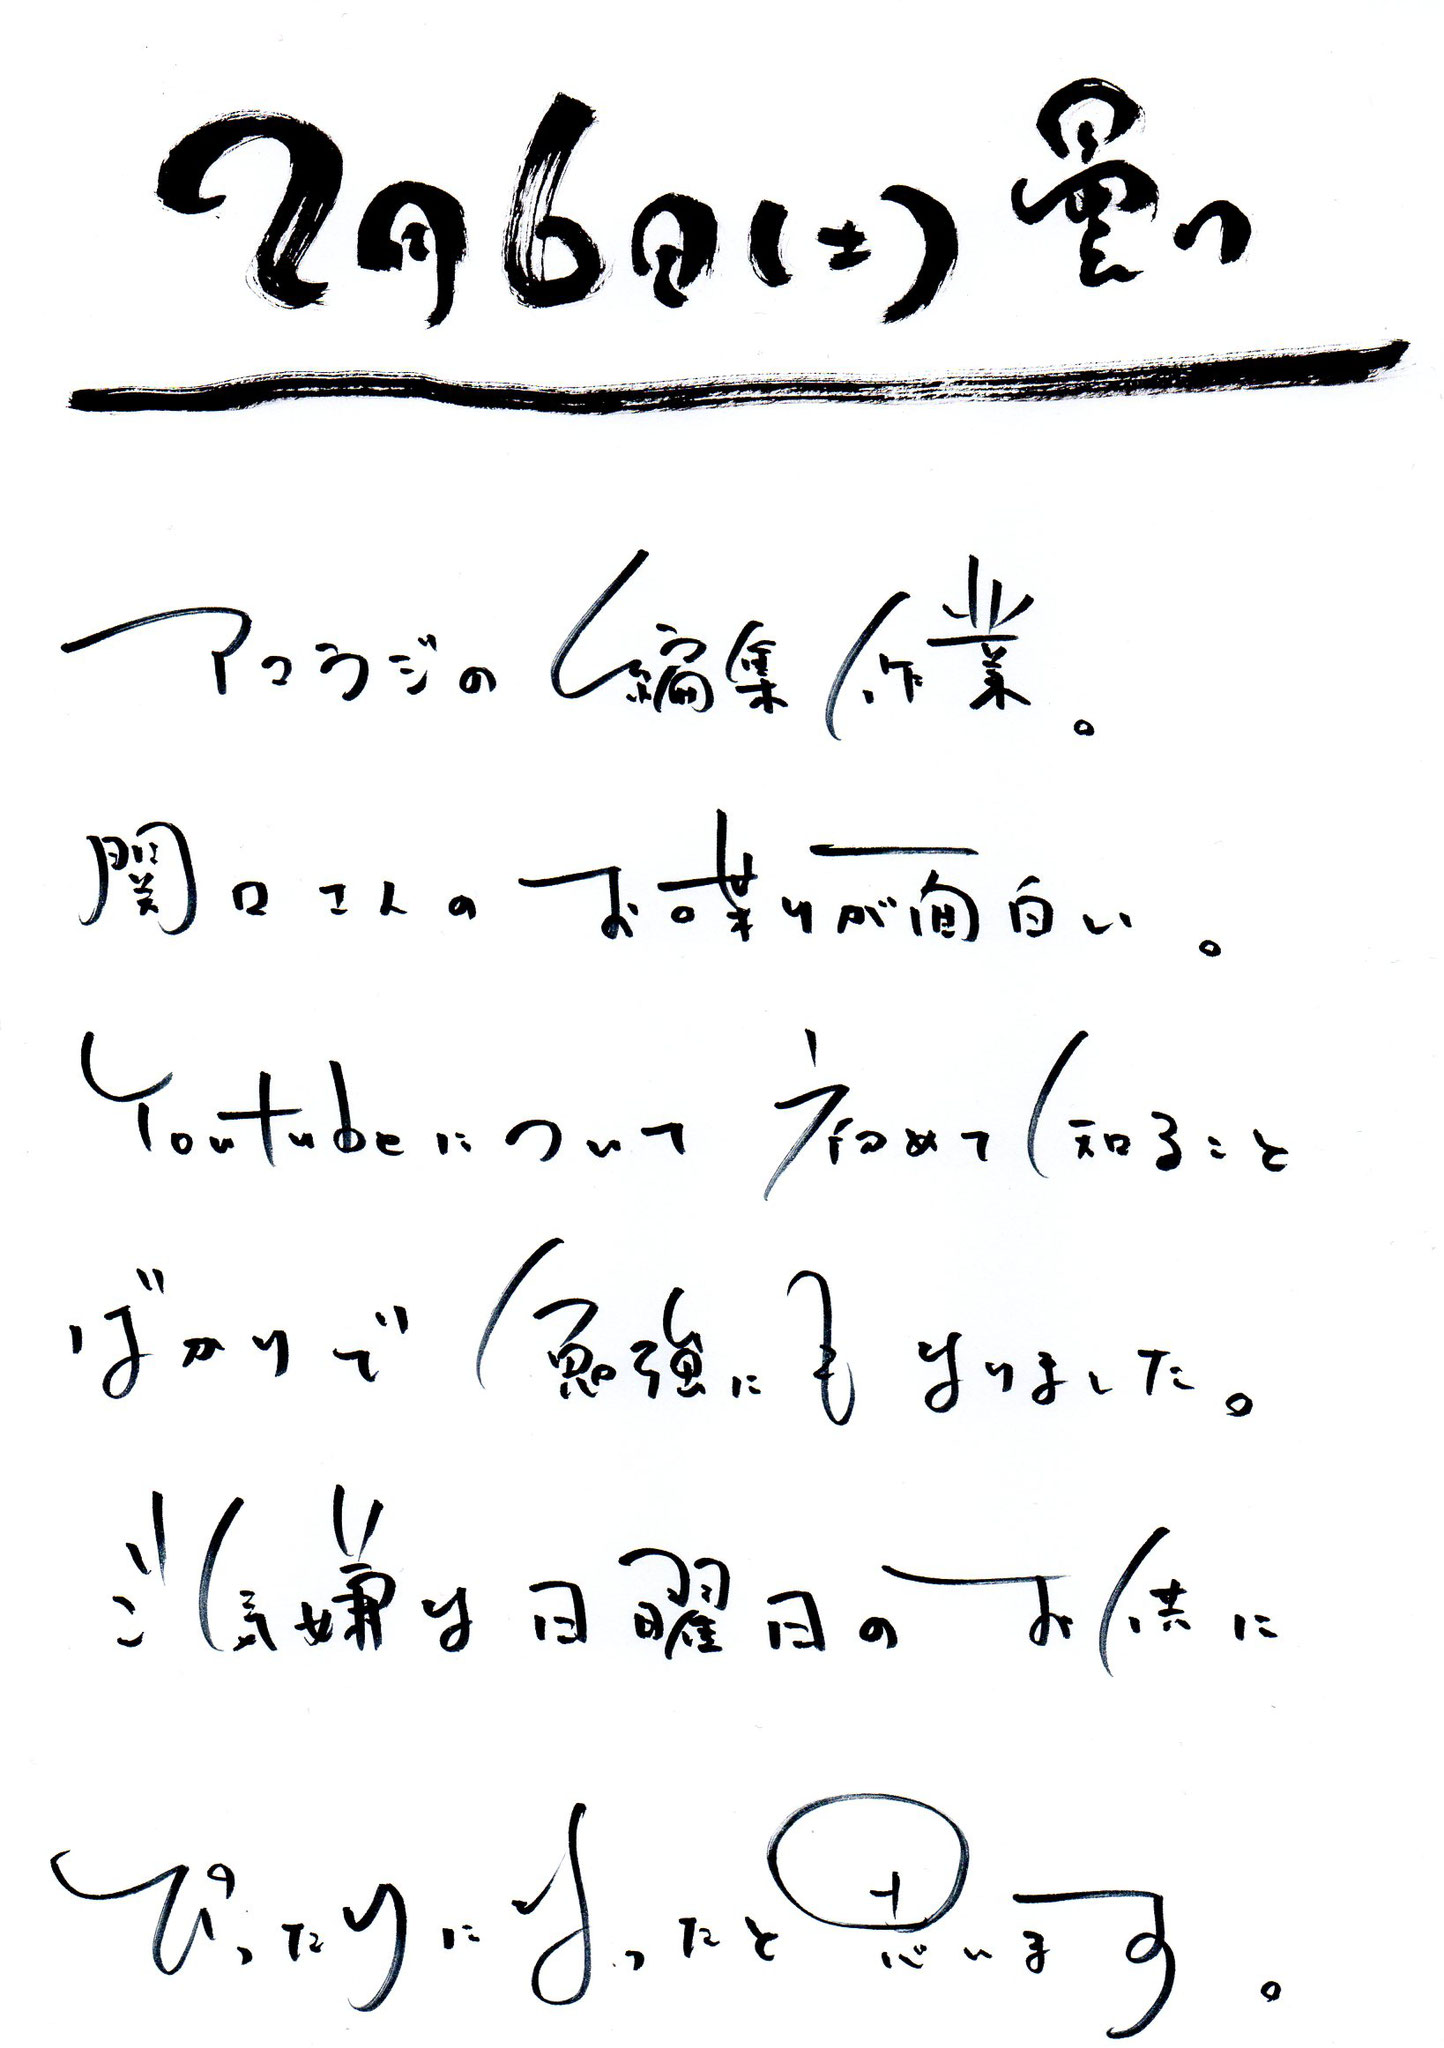 2月6日(土)曇り
アコラジの編集作業。
関口さんのお喋りが面白い。
Youtubeについて初めて知ること
ばかりで勉強にもなりました。
ご気嫌な日曜日のお供に
ぴったりになったと思います。